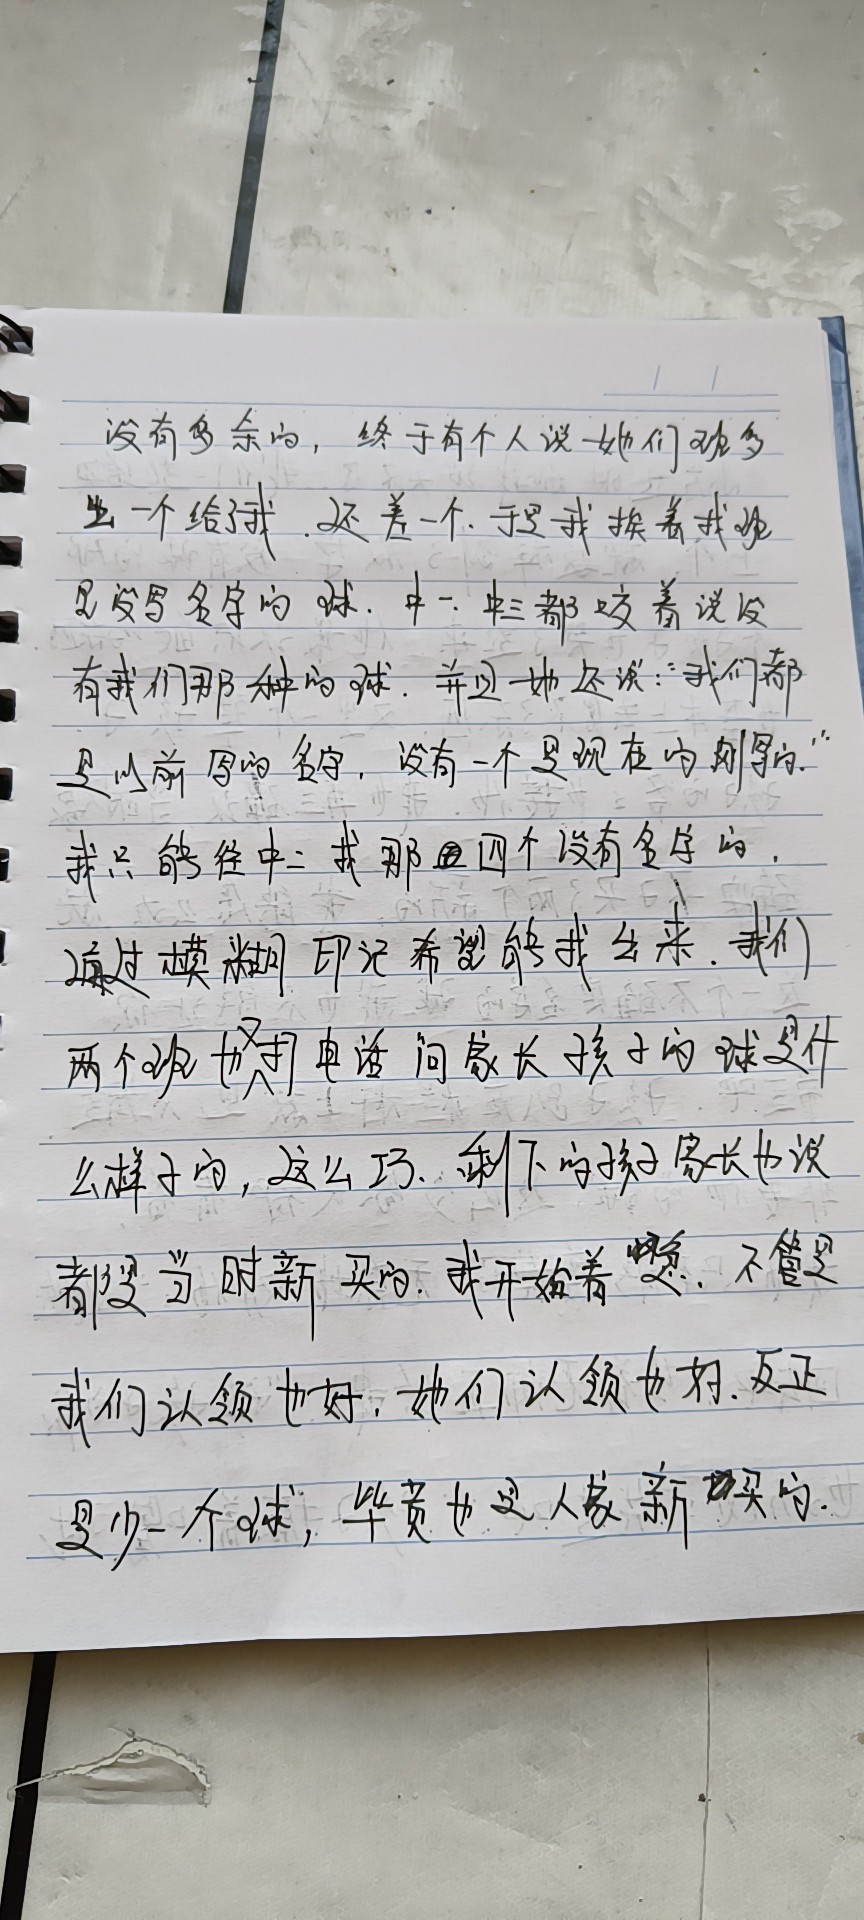 没有多余的，终于有个人说她们班多
出一个给了我.还差一个.于是我挨着找班
里没写名字的球.中一.中三都咬着说没
有我们那种的球.并且她还说："我们都
是以前写的名字，没有一个是现在的刚写的."
我只能给中二找那四个没有名字的.
通过模糊印记希望能找出来.我们
两个班也打电话问家长孩子的球是什
么样子的，这么巧.剩下的孩子家长也说
都是当时新买的.我开始着急.不管是
我们认领也好.她们认领也好.反正
是少一个球，毕竟也是人家新买的.